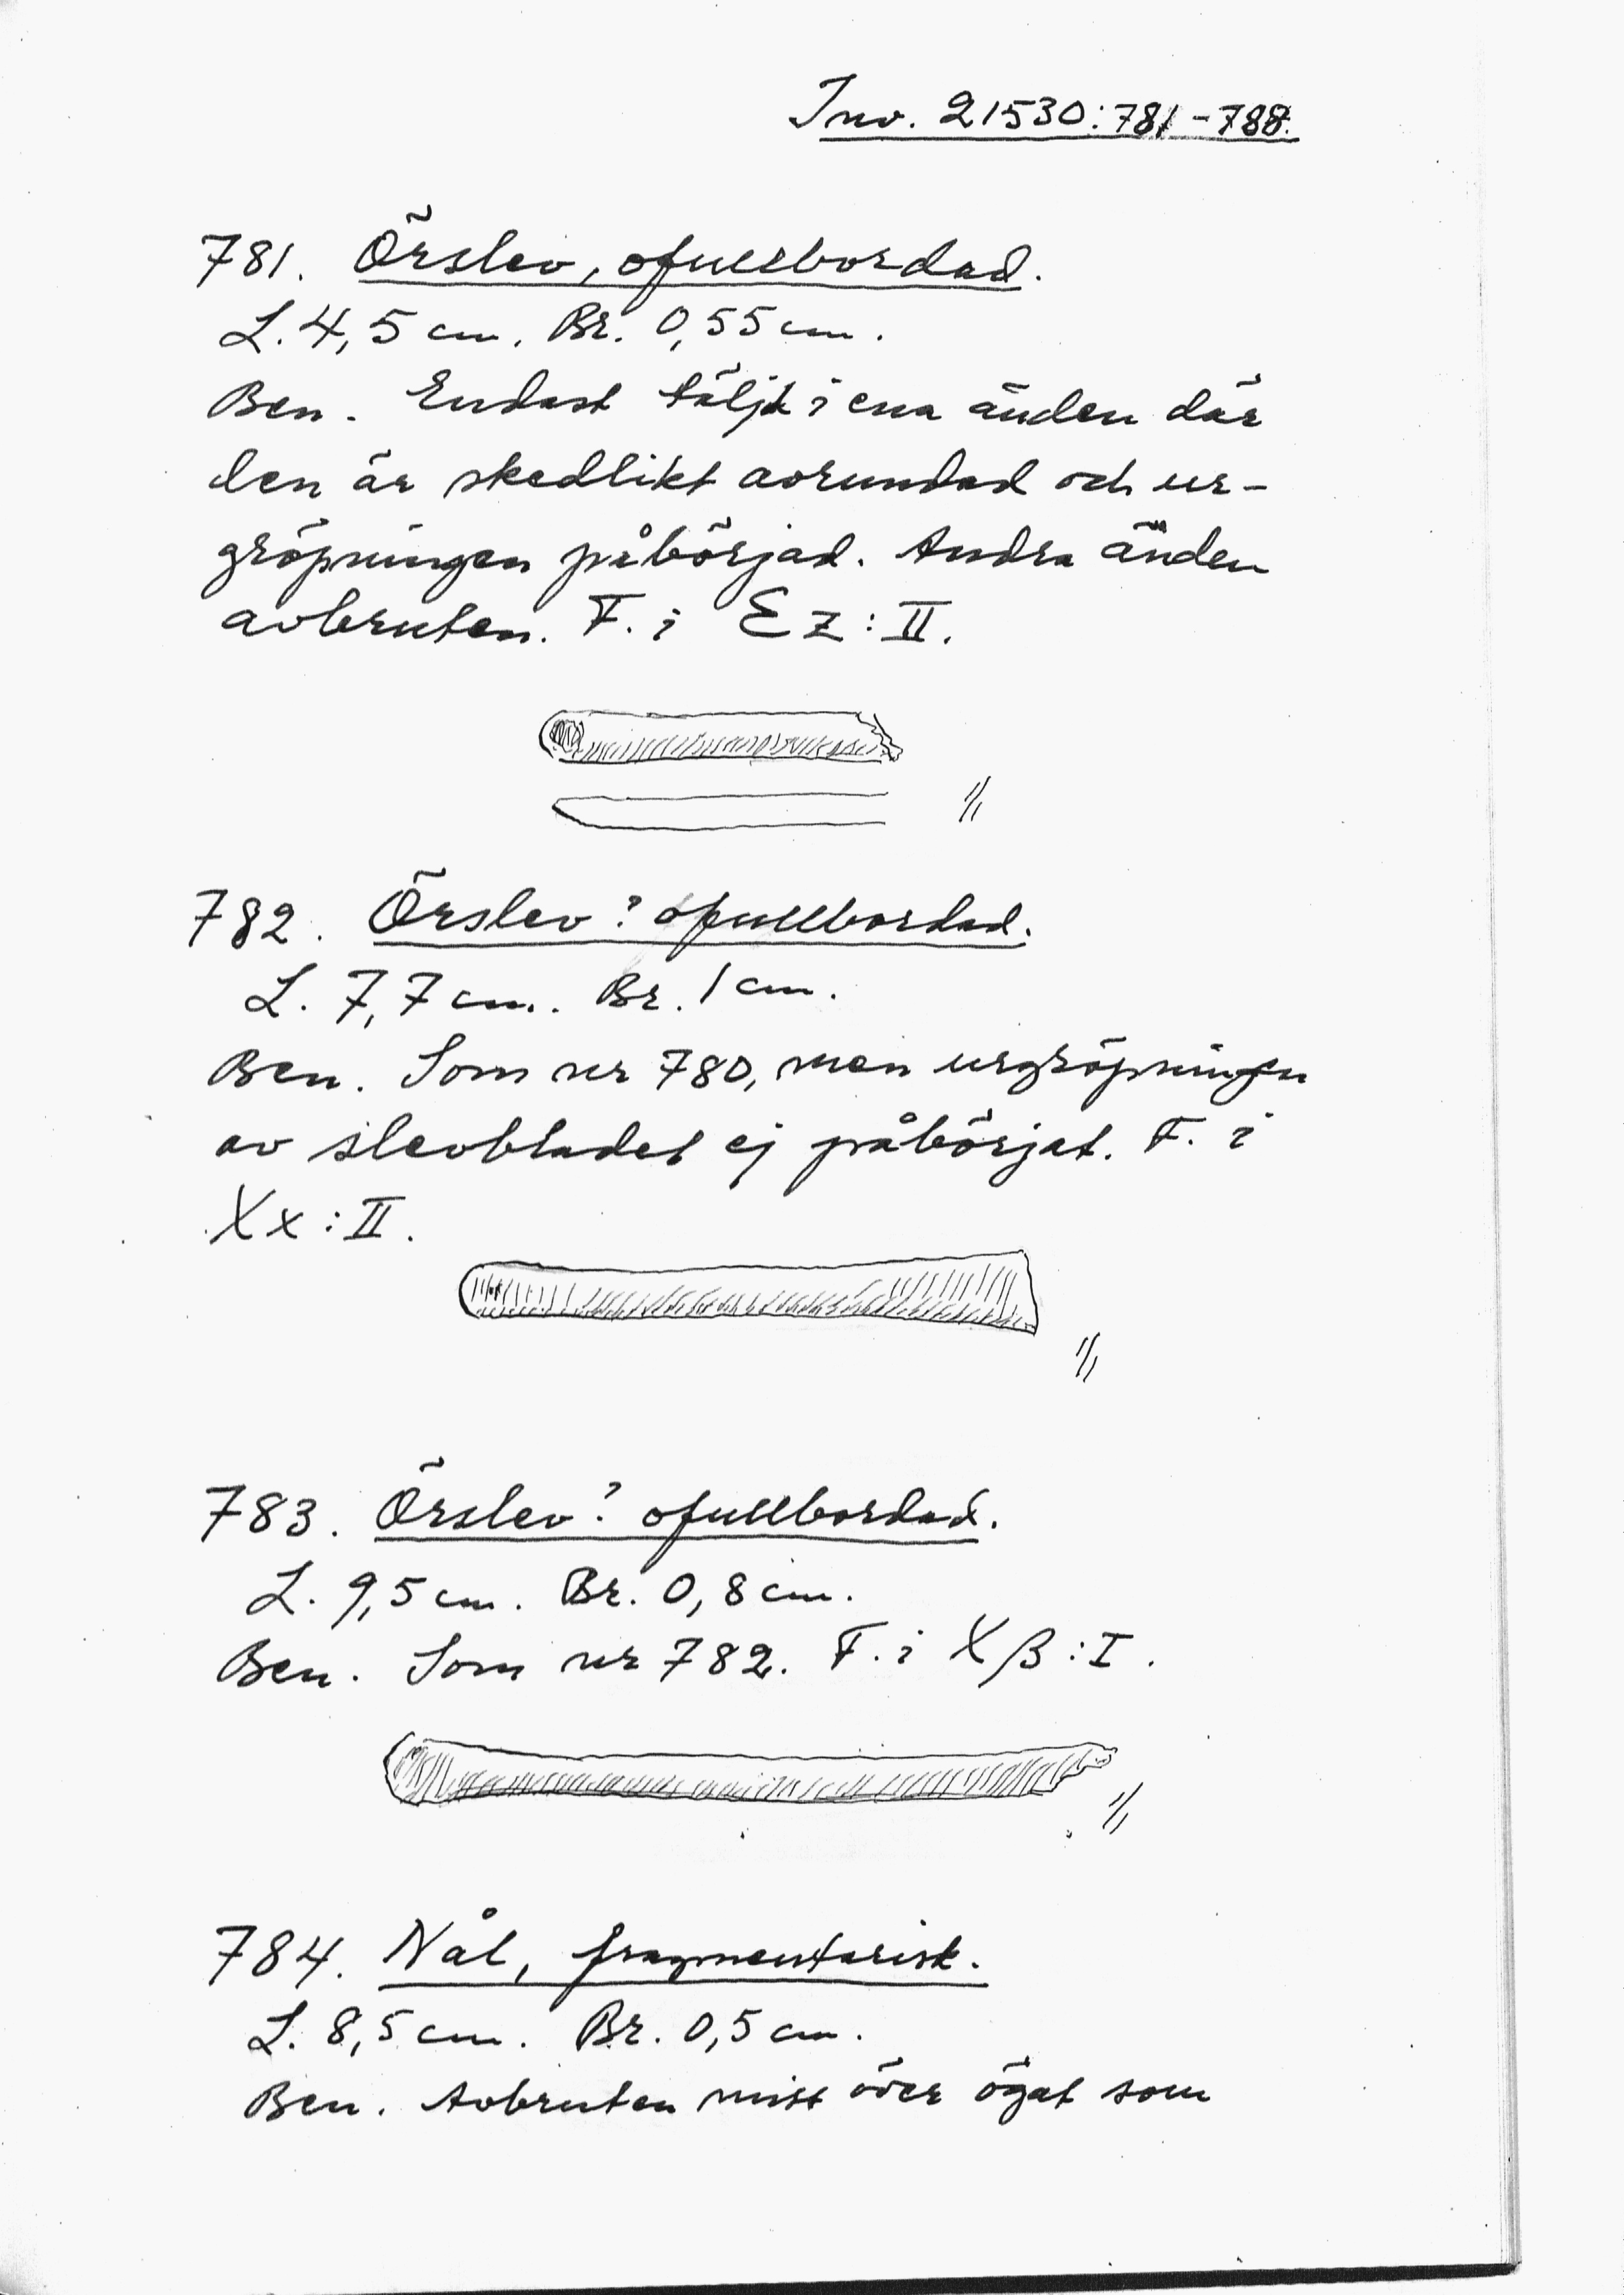 Inv. 21530:781-788.
781. Örslev, ofullbordad.
L. 4,5 cm. Br. 0,55 cm.
Ben. Endast täljd i ena änden där
den är skedlikt avrundad och ur-
gröpningen påbörjad. Andra änden
avbruten. F. i Ez:II.
1/1
782. Örslev? ofullbordad.
L. 7,7 cm. Br. 1 cm.
Ben. Som nr 780, men urgröpningen
av slevbladet ej påbörjat. F. i
Xx:II.
1/1
783. Örslev? ofullbordad.
L. 9,5 cm. Br. 0,8 cm.
Ben. Som nr 782. F. i Xβ:I.
1/1
784. Nål, fragmentarisk.
L. 8,5 cm. Br. 0,5 cm.
Ben. Avbruten mitt över ögat som